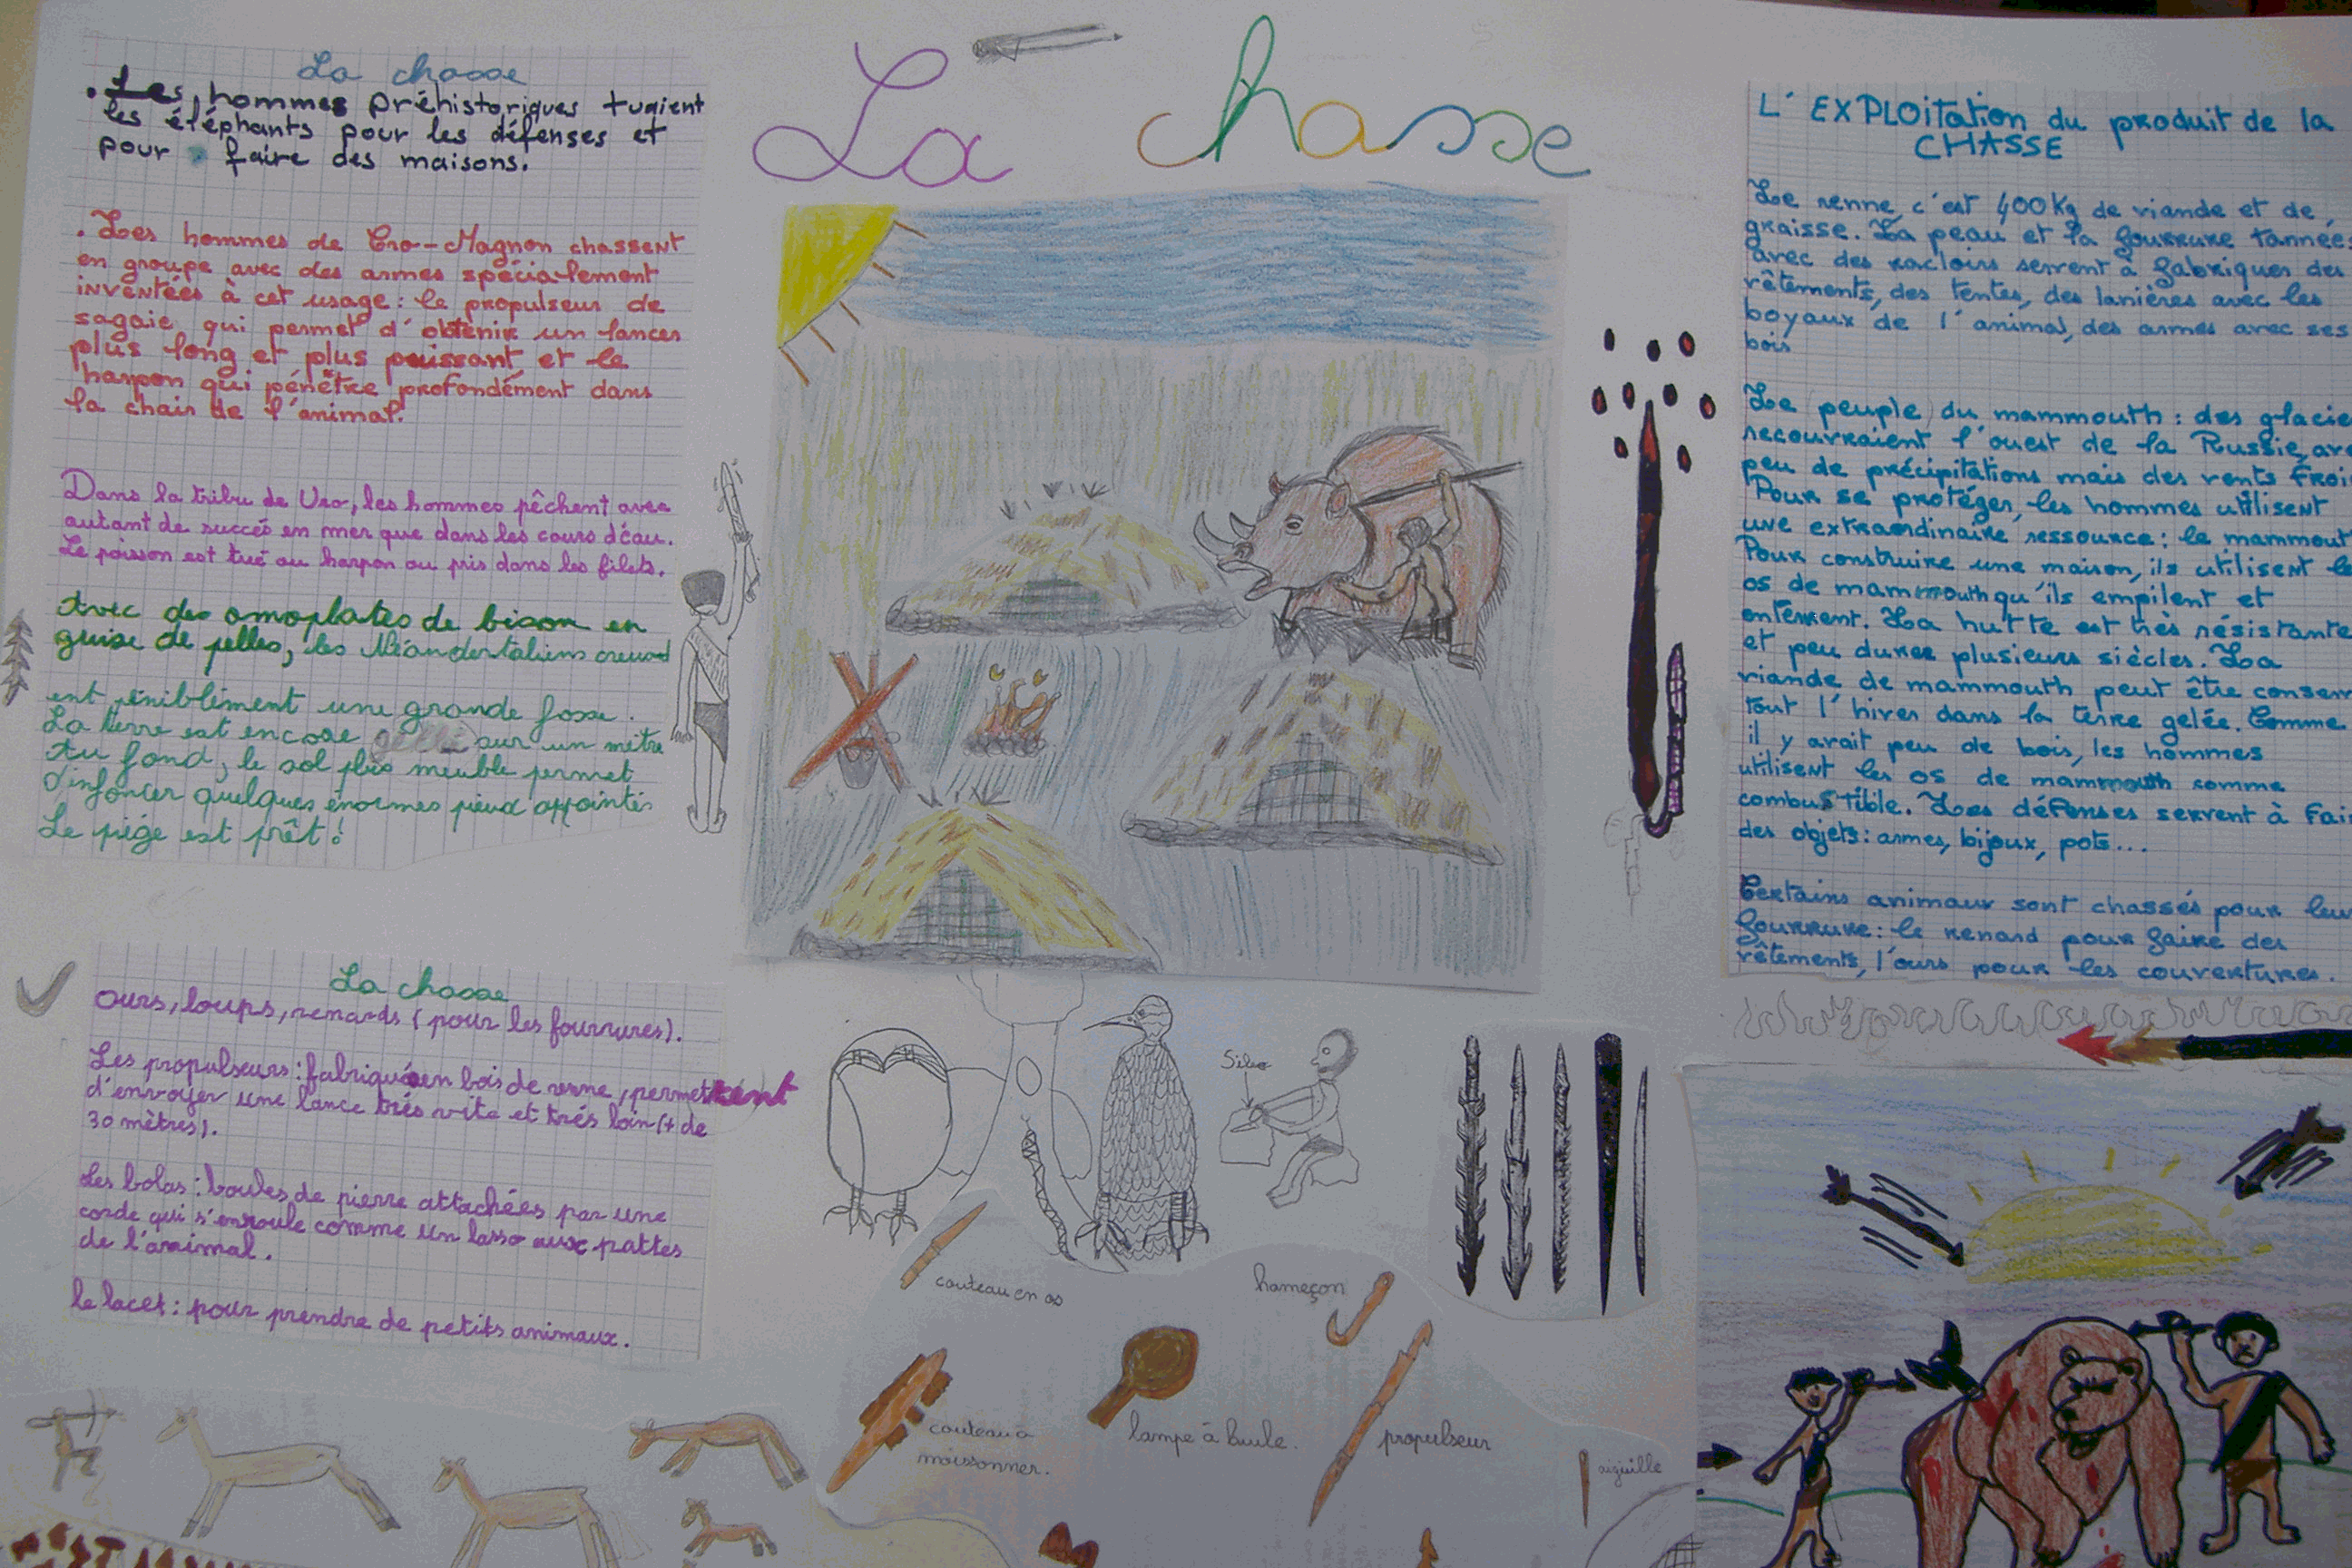 La chasse
La chasse
. Les hommes préhistoriques tuaient
les éléphants pour les défenses et
pour faire des maisons.
. Les hommes de Cro-Magnon chassent
en groupe avec des armes spécialement
inventées à cet usage : le propulseur de
sagaie qui permet d'obtenir un lancer
plus long et plus puissant, et le
harpon qui pénètre profondément dans
la chair de l'animal.
Dans la tribu de Uro, les hommes pêchent avec
autant de succés en mer que dans les cours d'eau.
Le poisson est tué au harpon ou pris dans les filets.
Avec des omoplates de bison en
guise de pelles, les Néandertaliens creus
ent péniblement une grande fosse.
La terre est encore gelée sur un mètre
Au fond, le sol plus meuble permet
d'enfoncer quelques énormes pieux appointés
Le piège est prêt !
La chasse
Ours, loups, renards (pour les fourrures).
Les propulseurs : fabriqué en bois de renne, permettent
d'envoyer une lance très vite et très loin (+ de
30 mètres).
Les bolas : boules de pierre attachées par une
corde qui s'enroule comme un lasso aux pattes
de l'animal.
le lacet : pour prendre de petits animaux.
L'EXPLOitation du produit de la
CHASSE
Le renne, c'est 400 Kg de viande et de
graisse. La peau et la fourrure tannées
avec des racloirs servent à fabriquer des
vêtements, des tentes, des lanières avec les
boyaux de l'animal, des armes avec ses
bois
Le peuple du mammouth : des
recouvraient l'ouest de la Russie,
peu de précipitations mais des vents
Pour se protéger, les hommes utilisent
une extraordinaire ressource : le
Pour construire une maison, ils utilisent
os de mammouth qu'ils empilent et
enterrent. La hutte est très résistante
et peu durer plusieurs siècles. La
viande de mammouth peut être
tout l'hiver dans la terre gelée. Comme
il y avait peu de bois, les hommes
utilisent les os de mammouth comme
combustible. Les défenses servent à
des objets : armes, bijoux, pots...
Certains animaux sont chassés pour
fourrure : le renard pour faire des
vêtements, l'ours pour les couvertures.
Silex
couteau en os
hameçon
couteau à
moissonner.
lampe à huile.
propulseur
aiguille